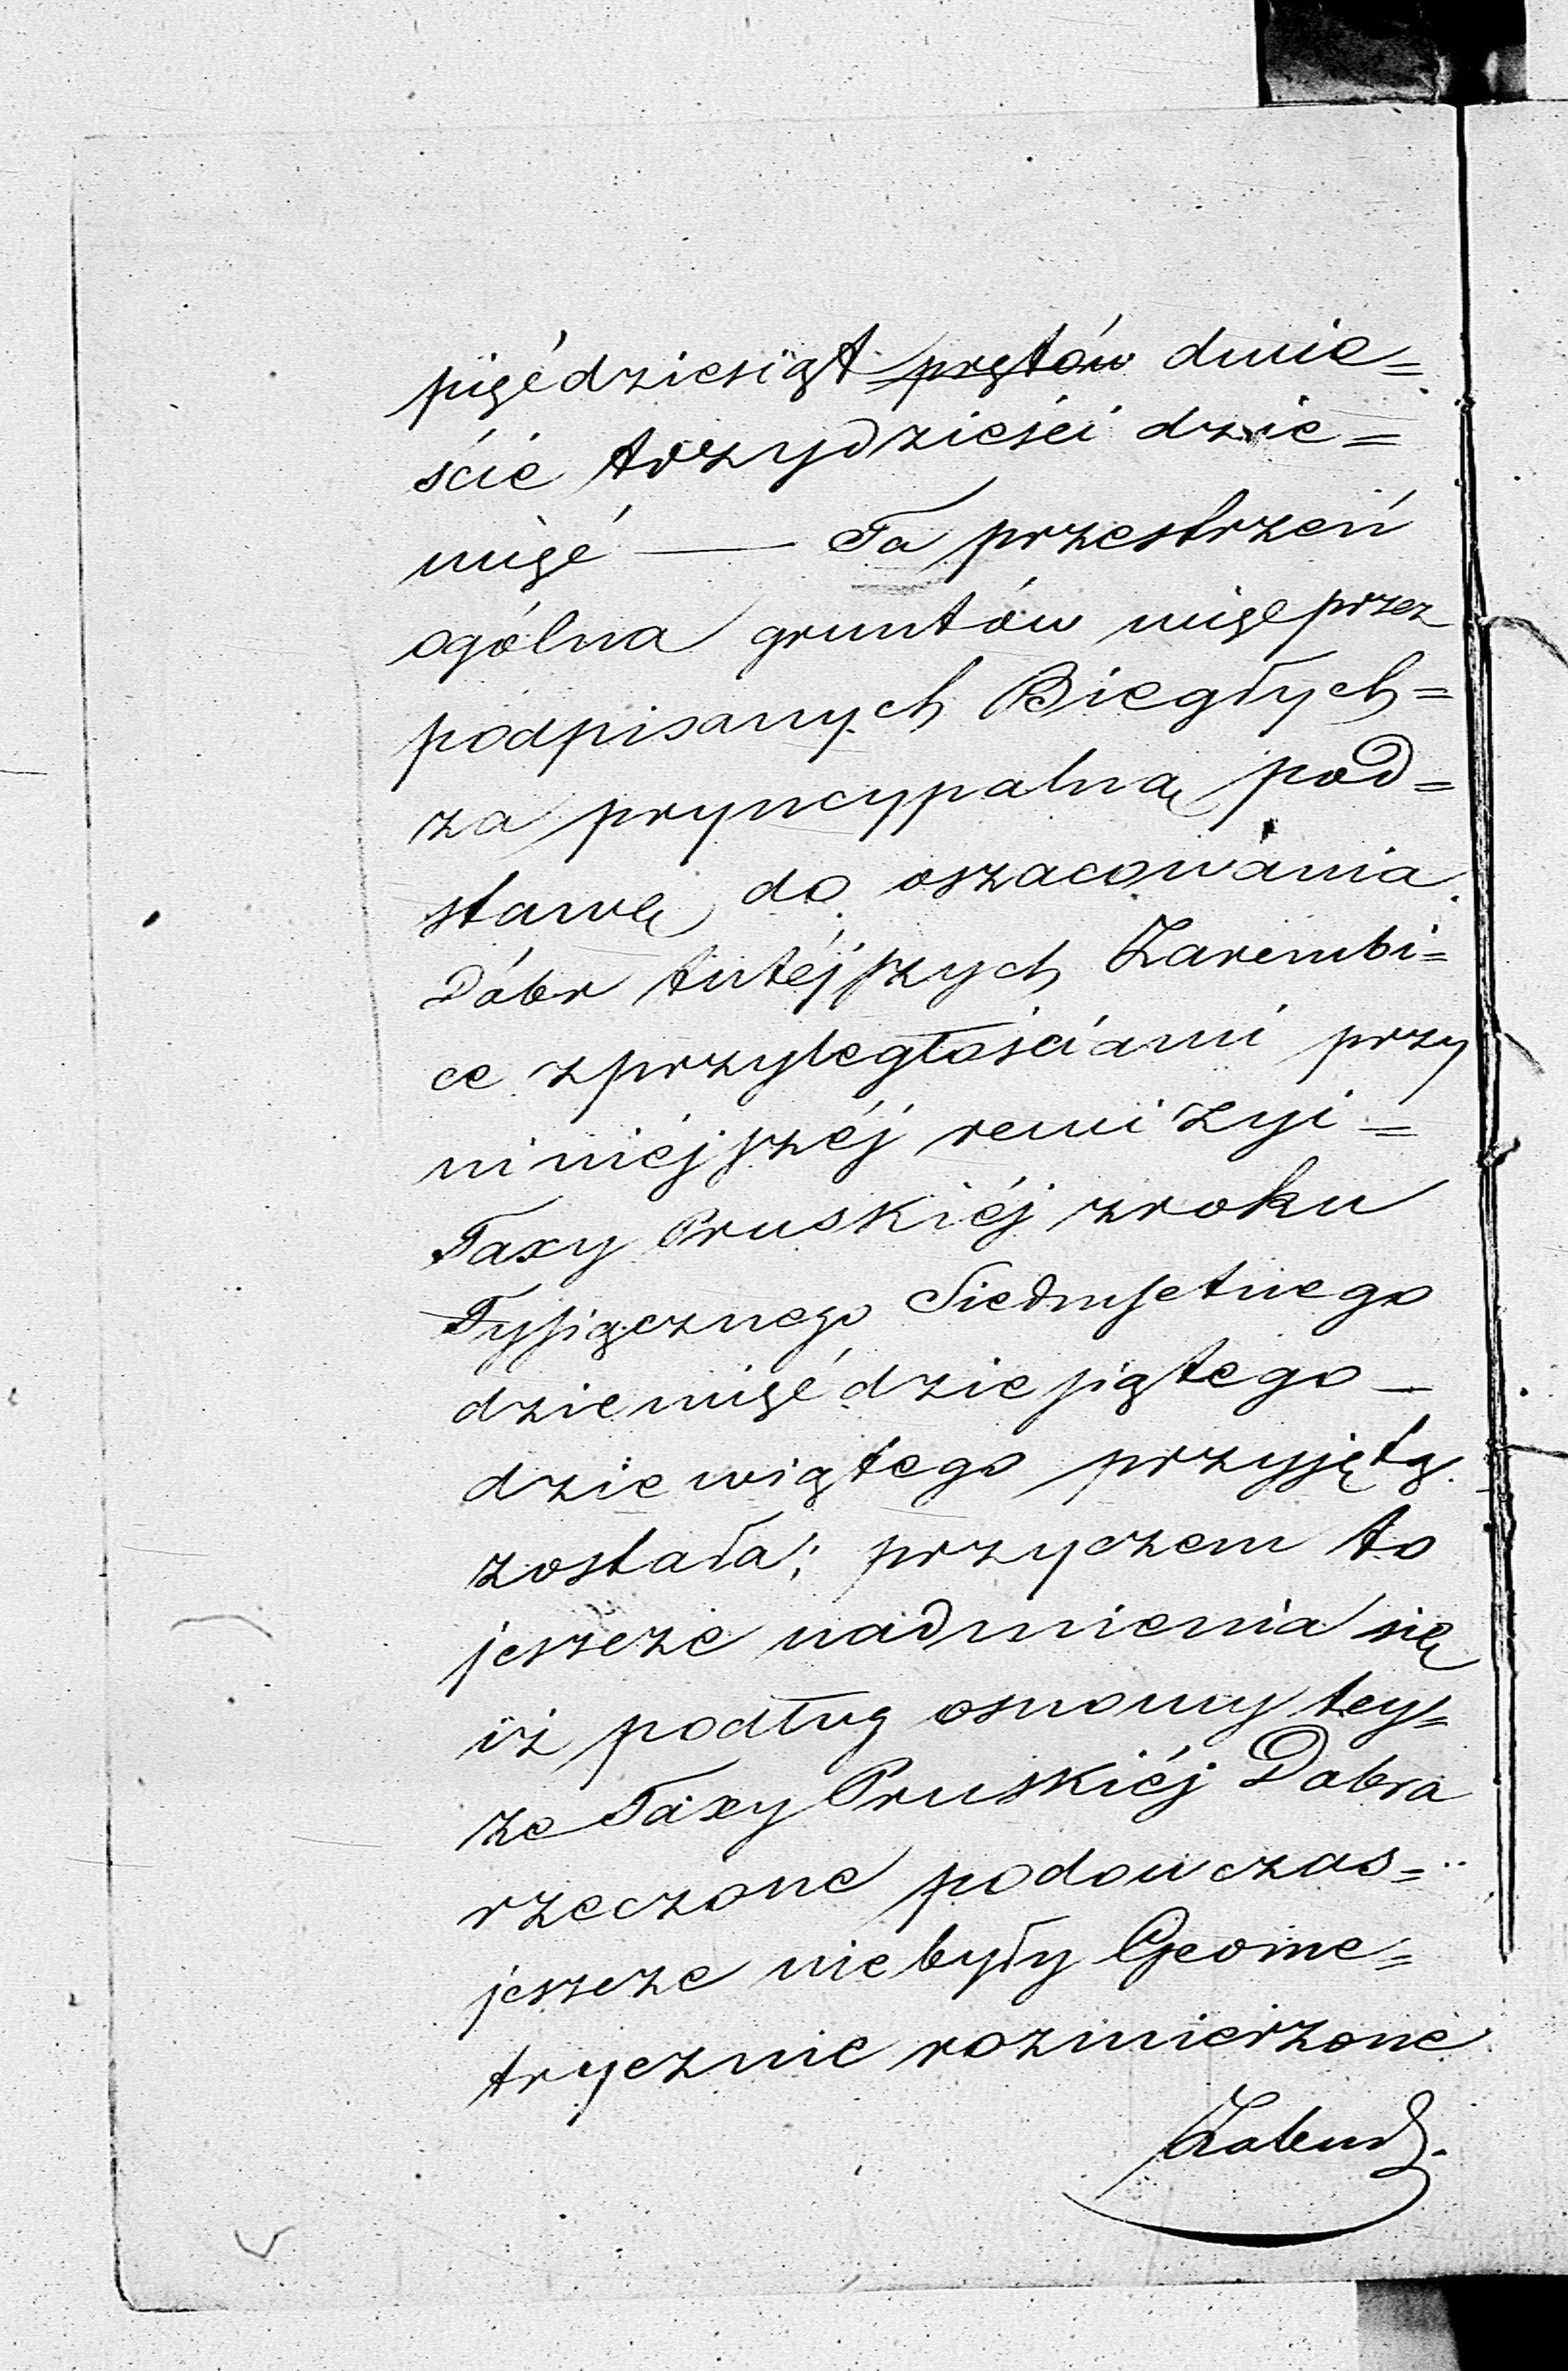 pięćdziesiąt prętów dwie=
ście trzydzieści dzie=
więć — Ta przestrzeń
ogólna gruntów więc przez
podpisanych Biegłych=
za pryncypalną pod=
stawę do oszacowania
Dóbr tutéjszych Zarembi=
ce z przyległościami przy
niniéjszéj rewizyi=
Taxy Pruskiéj z roku
Tysiącznego Siedmsetnego
dziewięćdziesiątego —
dziewiątego przyjętą
została; przyczem to
jeszcze nadmienia się
iż podług osnowy tey=
że Taxy Pruskiéj Dobra
rzeczone podówczas=
jeszcze nie były Geome=
trycznie rozmierzone